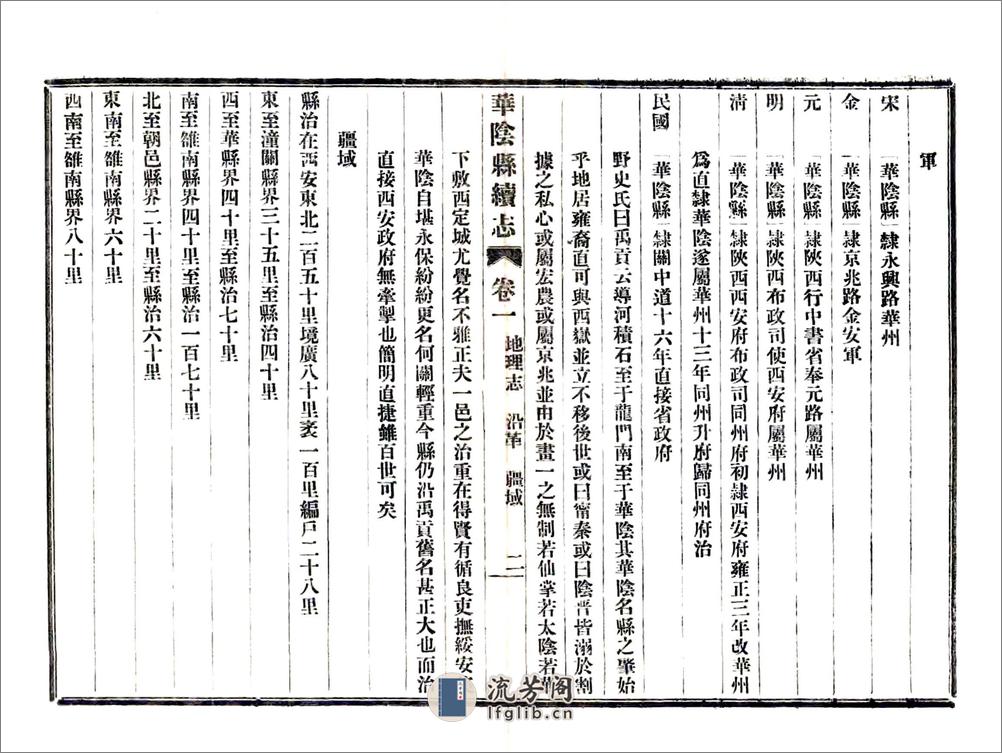 軍
宋 華陰縣 隸永興路華州
金 華陰縣 隸京兆路金安軍
元 華陰縣 隸陝西行中書省奉元路屬華州
明 華陰縣 隸陝西布政司使西安府屬華州
清 華陰縣 隸陝西西安府布政司同州府初隸西安府雍正三年改華州
爲直隸華陰遂屬華州十三年同州升府歸同州府治
民國 華陰縣 隸關中道十六年直接省政府
野史氏曰禹貢云導河積石至于龍門南至于華陰其華陰名縣之肇始
乎地居雍裔直可與西嶽並立不移後世或曰甯秦或曰陰晋皆溺於割
據之私心或屬宏農或屬京兆並由於畫一之無制若仙掌若太陰若
華陰縣續志 卷一 地理志 沿革 疆域 二
下敷西定城尤覺名不雅正夫一邑之治重在得賢有循良吏撫綏安
華陰自堪永保紛紛更名何關輕重今縣仍沿禹貢舊名甚正大也而治
直接西安政府無牽掣也簡明直捷雖百世可矣
疆域
縣治在西安東北二百五十里境廣八十里袤一百里編戶二十八里
東至潼關縣界三十五里至縣治四十里
西至華縣界四十里至縣治七十里
南至雒南縣界四十里至縣治一百七十里
北至朝邑縣界二十里至縣治六十里
東南至雒南縣界六十里
西南至雒南縣界八十里
流芳阁
lfglib.cn